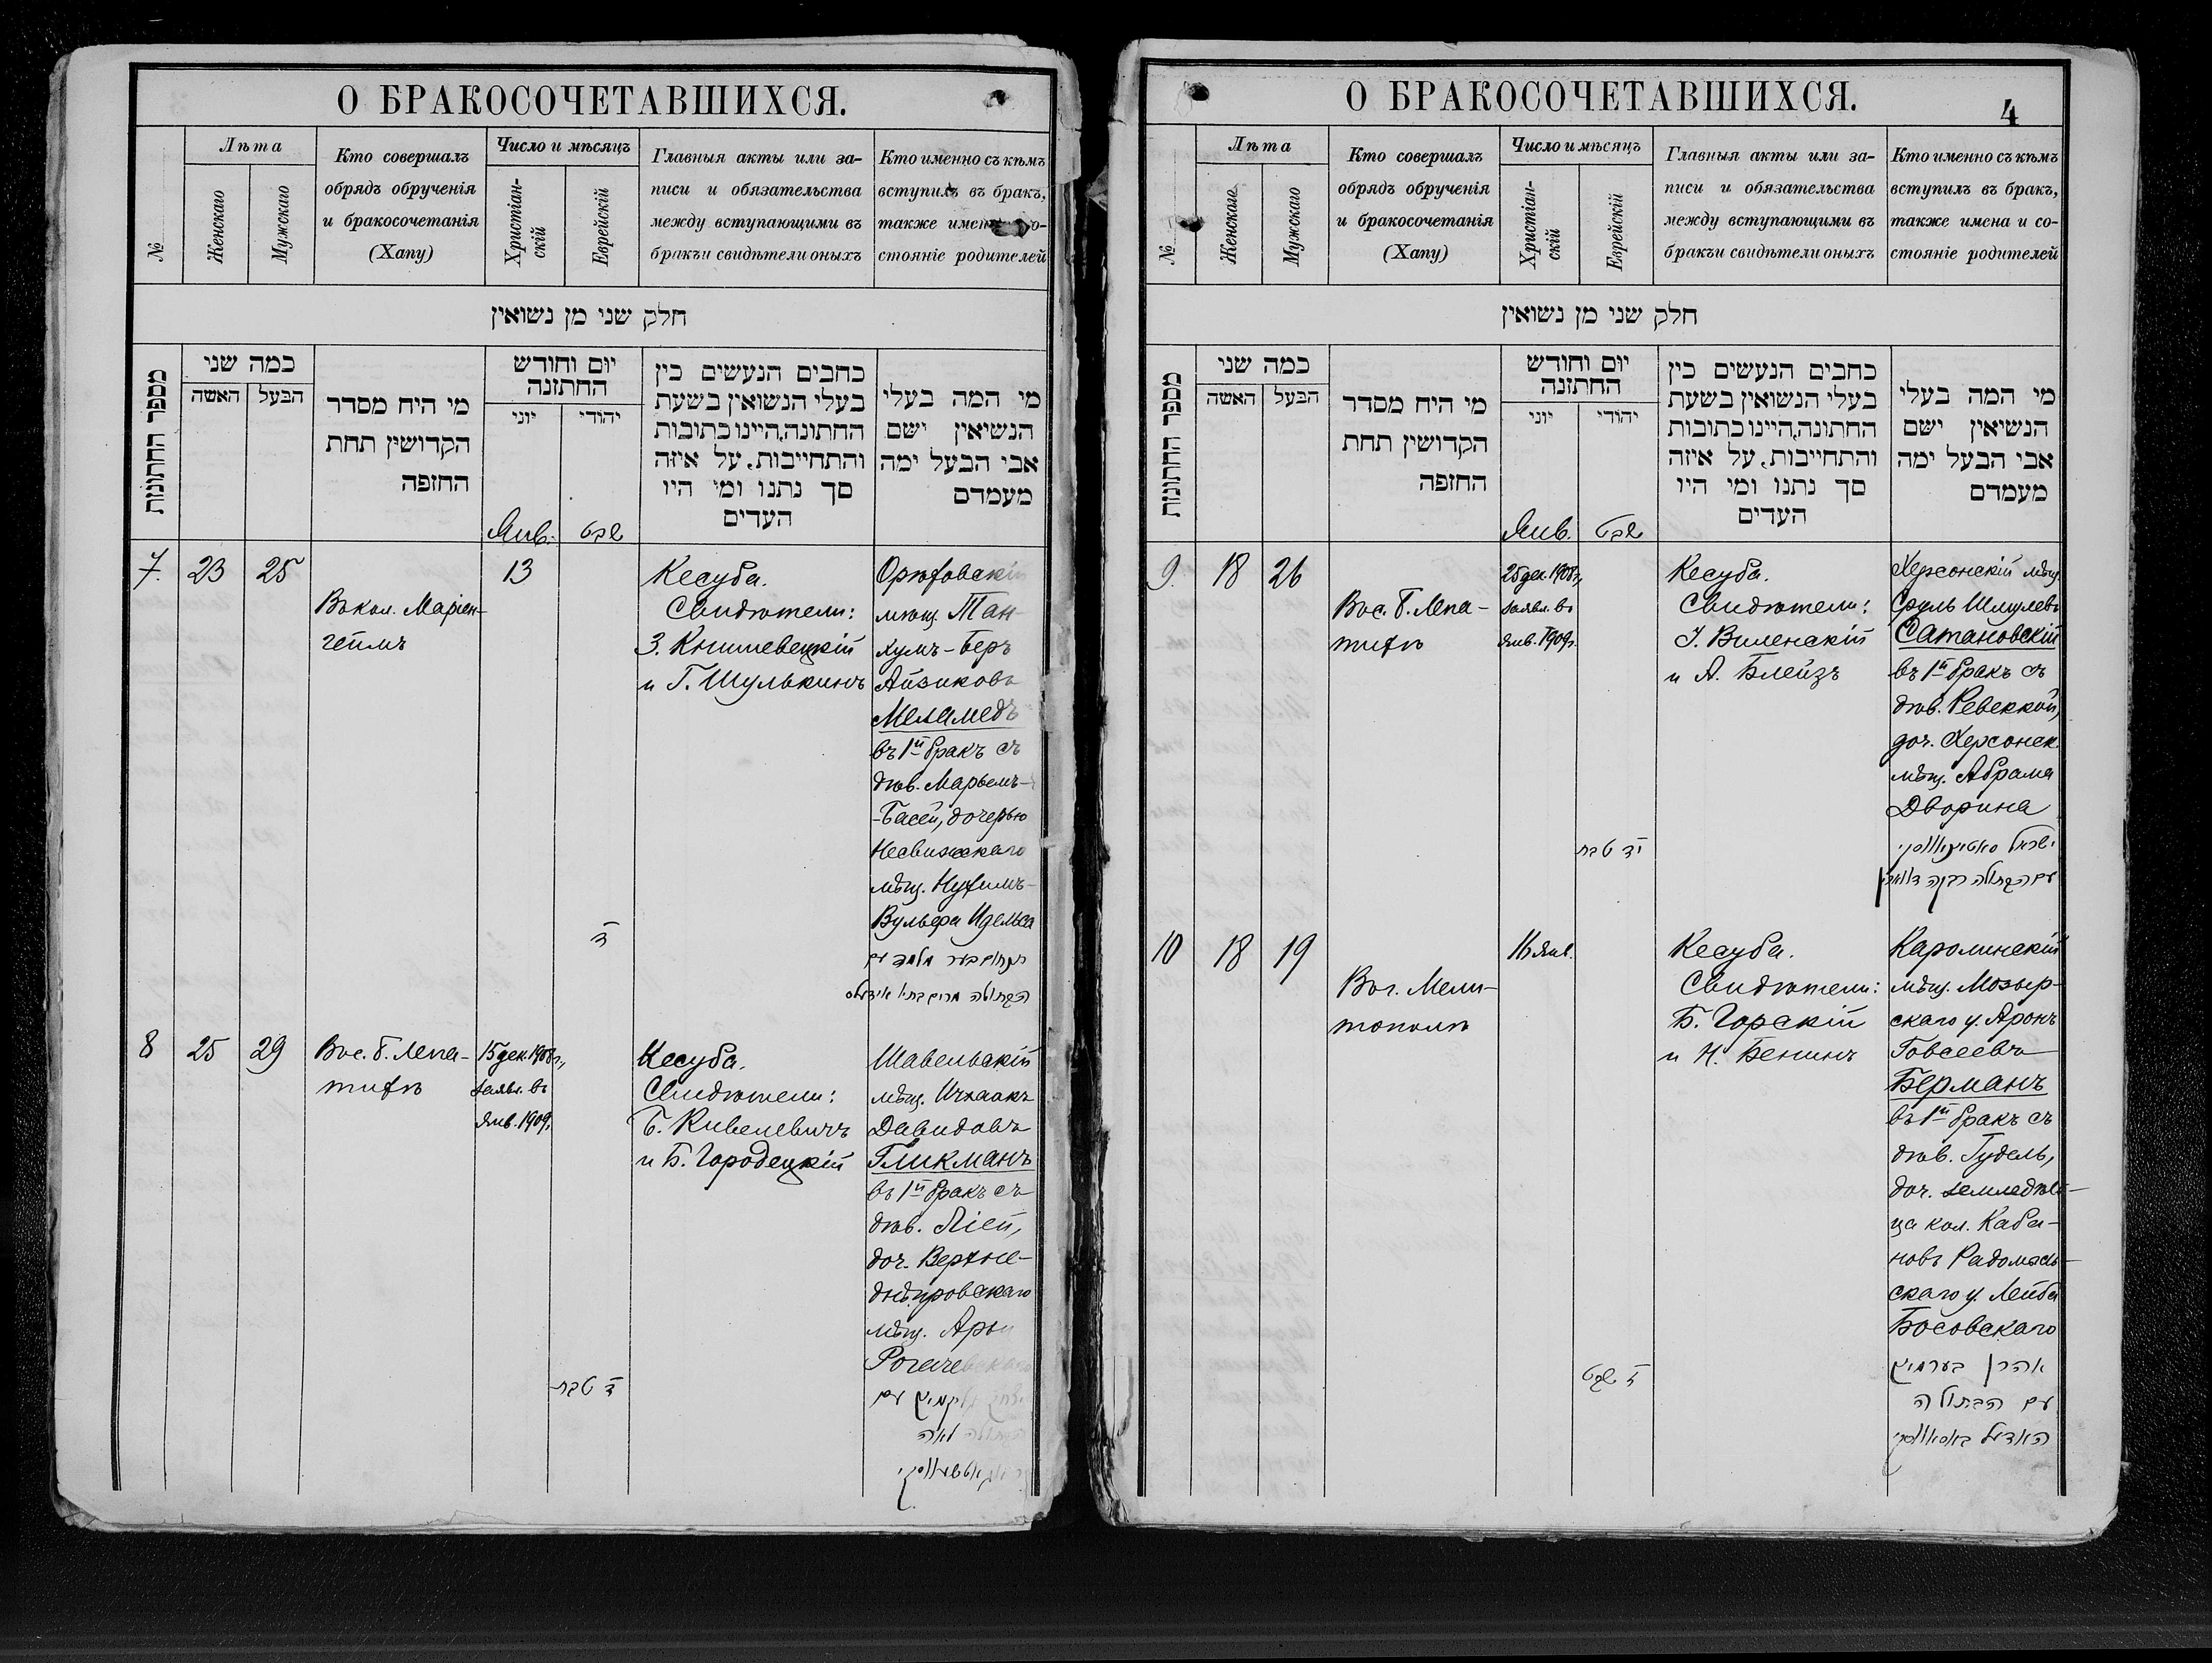 О БРАКОСОЧЕТАВШИХСЯ.
№
Лѣта
Женскаго
Мужскаго
Кто совершалъ
обрядъ обрученія
и бракосочетанія
(Хапу)
Число и мѣсяцъ
Христіан-
скій
Еврейскій
Главныя акты или за-
писи и обязательства
между вступающими въ
бракъи свидѣтели оныхъ
Кто именно съ кѣмъ
вступилъ въ бракъ,
также имен
стояніе родителей
חלק שני מן נשואין
מספר החתונות
כמה שני
האשה
הבעל
מי היח מסדר
הקדושין תחת
החופה
יום וחודש
החתונה
יוני
יהודי
כחבים הנעשים כין
בעלי הנשואין בשעת
החתונה,היינו כתובות
והתחייבות, על איזה
סך נתנו ומי היו
העדים
מי המה בעלי
הנשיאין ישם
אבי הבעל ימה
מעמדם
Янв.
שבט
7.
23
25
Въ кол. Маріен-
геймъ
13
ד
Кесуба.
Свидѣтели:
З. Кнышевецкій
и Г. Шулькинъ
Орѣховскій
мѣщ. Тан-
хумъ-Беръ
Айзиковъ
Меламедъ
въ 1й бракъ съ
дѣв. Марьемъ-
-Басей, дочерью
Несвижскаго
мѣщ. Нухимъ-
Вульфа Идельса
תנחום בער מלמד עם
הבתולה מרים בתי' אידעלס
8
25
29
Въ с. Б. Лепа-
тихѣ
15 дек. 1908 г.,
заявл. въ
Янв. 1909.
ד טבת
Кесуба.
Свидѣтели:
Б. Кивелевичъ
и Б. Городецкій
Шавельскій
мѣщ. Ицхакъ
Давидовъ
Гликманъ
въ 1й бракъ съ
дѣв. Ліей,
доч. Верхне-
днѣпровскаго
мѣщ. Арьи
Рогачевскаго
יצחק גליקמאן עם
הבתולה לאה
О БРАКОСОЧЕТАВШИХСЯ.
4
№
Лѣта
Женскаго
Мужскаго
Кто совершалъ
обрядъ обрученія
и бракосочетанія
(Хапу)
Число и мѣсяцъ
Христіан-
скій
Еврейскій
Главныя акты или за-
писи и обязательства
между вступающими въ
бракъи свидѣтели оныхъ
Кто именно съ кѣмъ
вступилъ въ бракъ,
также имена и со-
стояніе родителей
חלק שני מן נשואין
מספר החתונות
כמה שני
האשה
הבעל
מי היח מסדר
הקדושין תחת
החופה
יום וחודש
החתונה
יוני
יהודי
כחבים הנעשים כין
בעלי הנשואין בשעת
החתונה,היינו כתובות
והתחייבות, על איזה
סך נתנו ומי היו
העדים
מי המה בעלי
הנשיאין ישם
אבי הבעל ימה
מעמדם
Янв.
שבט
9.
18
26
Въ с. Б. Лепа-
тихѣ
25 дек. 1908 г.,
заявл. въ
Янв. 1909 г.
יד טבת
Кесуба.
Свидѣтели:
І. Виленскій
и А. Блейзъ
Херсонскій мѣщ.
Сруль Шмулевъ
Сатановскій
въ 1й бракъ съ
дѣв. Ревеккой,
доч. Херсонск.
мѣщ. Абрама
Дворина
עם הבתולה רבקה דווארין
10
18
19
Въ г. Мели-
тополѣ
16 Янв.
ז שבט
Кесуба.
Свидѣтели:
Б. Горскій
и Н. Бенинъ
Каролинскій
мѣщ. Мозыр-
скаго у. Аронъ
Говсеевъ
Берманъ
въ 1й бракъ съ
дѣв. Гудель,
доч. земледѣль-
ца кол. Каба-
новъ Радомысль-
скаго у. Лейба
Босовскаго
אהרן בערמאן
עם הבתולה
האדיל באסאווסקי